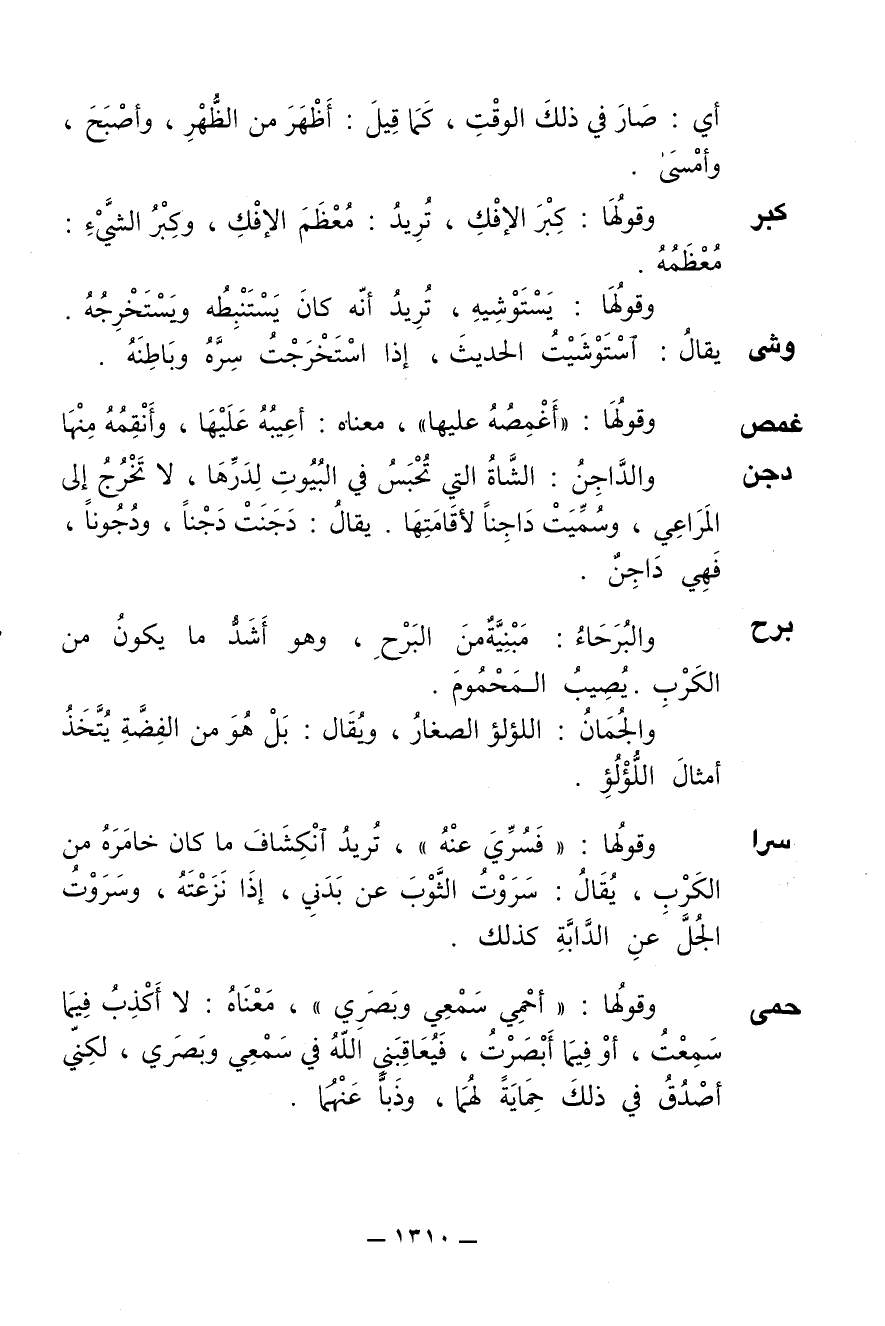 أي : صَارَ في ذلكَ الوقْتِ ، كَمَا قِيلَ : أَظْهَرَ من الظُّهْرِ ، وأصْبَحَ ،
وأمْسَىٰ .
كبر وقولُهَا : كِبْرَ الإفْكِ ، تُرِيدُ : مُعْظَمَ الإفْكِ ، وكِبْرُ الشَّيْءِ :
مُعْظَمُهُ .
وقولُهَا : يَسْتَوْشِيهِ ، تُرِيدُ أنّه كانَ يَسْتَنْبِطُه ويَسْتَخْرِجُهُ .
وشى يقالُ : ٱسْتَوْشَيْتُ الحديثَ ، إذا اسْتَخْرَجْتُ سِرَّهُ وبَاطِنَهُ .
غمص وقولُهَا : «أَغْمِصُهُ عليها» ، معناه : أعِيبُهُ عَلَيْهَا ، وأَنْقِمُهُ مِنْهَا
دجن والدَّاجِنُ : الشَّاةُ التي تُحْبَسُ في البُيُوتِ لِدَرِّهَا ، لا تَخْرُجُ إلى
المَرَاعِي ، وسُمِّيَتْ دَاجِناً لأقَامَتِهَا . يقالُ : دَجَنَتْ دَجْناً ، ودُجُوناً ،
فَهِي دَاجِنٌ .
برح والبُرَحَاءُ : مَبْنِيَّةٌ منَ البَرْحِ ، وهو أَشَدُّ ما يكونُ من
الكَرْبِ . يُصِيبُ الـمَحْمُومَ .
والجُمَانُ : اللؤلؤ الصغارُ ، ويُقَال : بَلْ هُوَ من الفِضَّةِ يُتَّخَذُ
أمثالَ اللُّؤْلُؤِ .
سرا وقولُها : « فَسُرِّيَ عنْهُ » ، تُريدُ ٱنْكِشَافَ ما كان خامَرَهُ من
الكَرْبِ ، يُقَالُ : سَرَوْتُ الثَّوْبَ عن بَدَني ، إذَا نَزَعْتَهُ ، وسَرَوْتُ
الجُلَّ عنِ الدَّابَّةِ كذلك .
حمى وقولُها : « أحْمِي سَمْعِي وبَصَرِي » ، مَعْنَاهُ : لا أَكْذِبُ فِيمَا
سَمِعْتُ ، أوْ فِيمَا أَبْصَرْتُ ، فَيُعَاقِبَنِي اللّهُ في سَمْعِي وبَصَري ، لكِنّي
أصْدُقُ في ذلكَ حِمَايَةً لهُمَا ، وذَباً عَنْهُمَا .
— ١٣١٠ —